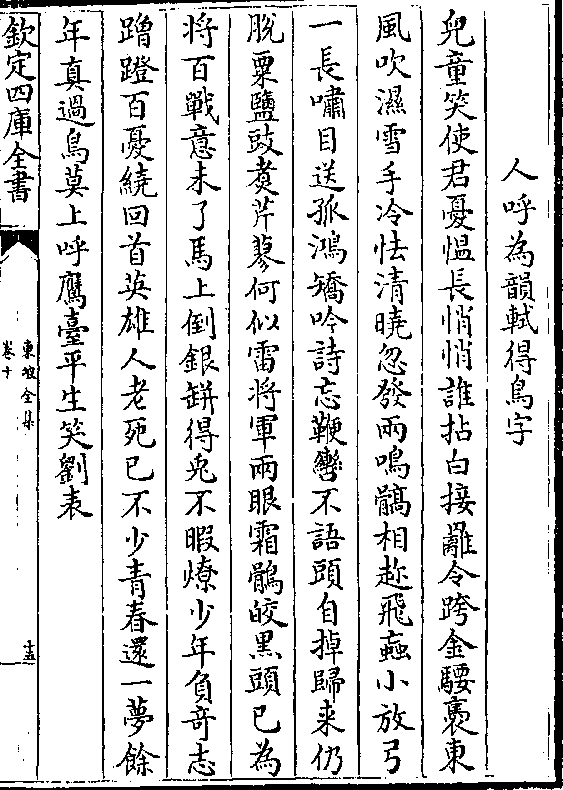 人呼為韻軾得鳥字
兒童笑使君憂愠長悄悄誰拈白接䍦令跨金騕褭東
風吹濕雪手冷怯清曉忽發兩鳴髇相趂飛䖟小放弓
一長嘯目送孤鴻矯吟詩忘鞭轡不語頭自掉歸来仍
脫粟鹽豉煑芹蓼何似雷将軍兩眼霜鶻皎黑頭已為
将百戰意未了馬上倒銀缾得兎不暇燎少年負竒志
蹭蹬百憂繞回首英雄人老死已不少青春還一夢餘
年真過鳥莫上呼鷹臺平生笑劉表
欽定四庫全書
東坡全集
卷十